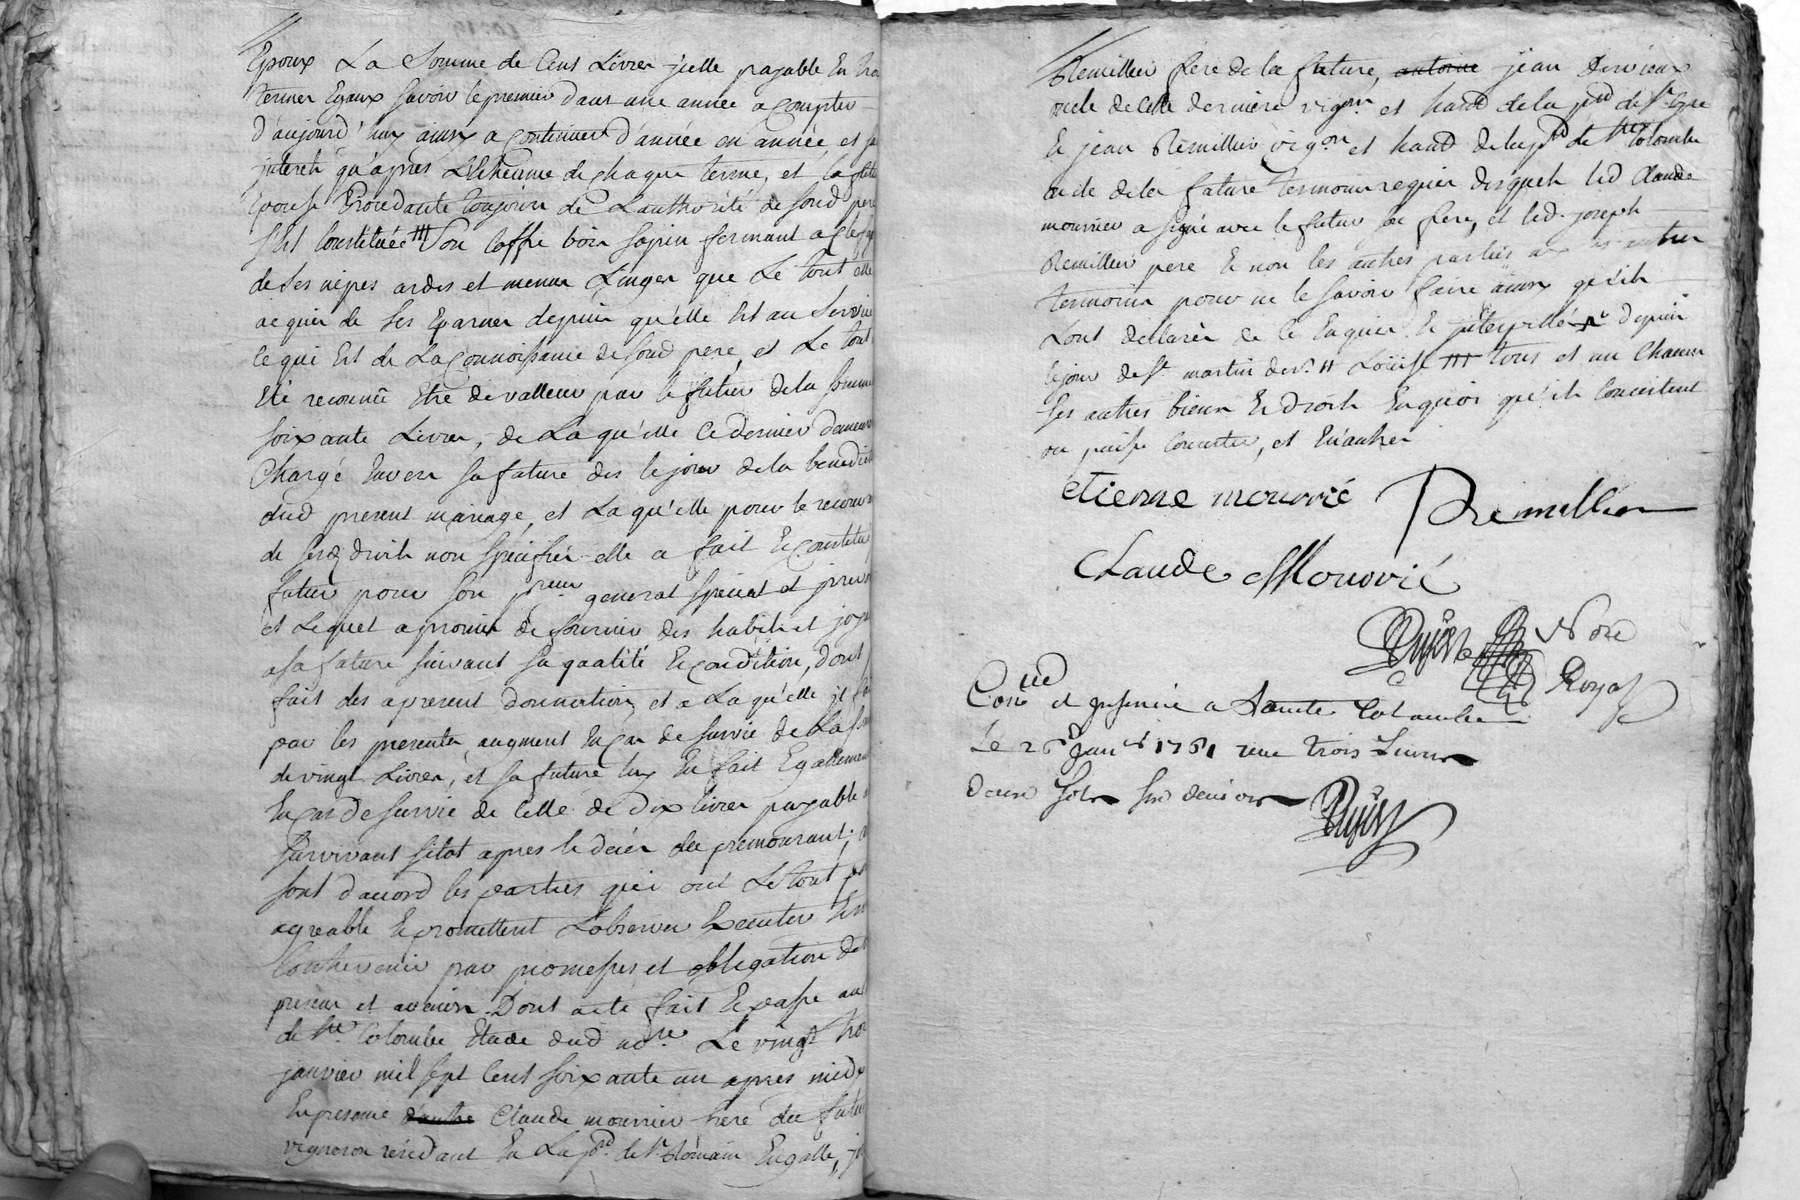 Epoux La Somme de Cent Livres jcelle payable En
termes Egaux savoir le premier dans une année a compter
d'aujourd'huy ainsy a continuer d'année en année et
jnterets qu'apres L'Echeance de chaque terme, et la
Epouse Procedante toujours de L'authorité de sond pere
s'Est Constituée Son Coffre bois sapin fermant a clef
de ses nipes ardes et menus Linges que Le tout elle
acquis de ses Eparnes depuis qu'elle Est au Service
ce qui Est de La Connoissance de sond pere, et Le tout
Eté reconnû Etre de valleur par le futur de la somme
soixante Livres, de La qu'elle Ce dernier demeure
Chargé Envers sa future des le jour de la
dud present mariage, et La qu'elle pour le
de sesd droits non spécifiés elle a fait Et Constitué
futur pour son preur general special et
et Lequel a promis de fournir des habits et
a sa future suivant sa qualité Et condition, dont
fait des apresent donnation, et a La qu'elle jl
par les presentes augment En Cas de survie de La
de vingt Livres, et sa future luy En fait Egallement
En Cas de survie de Celle de Dix livres payable
survivant sitot apres le deces du premourant,
sont d'accord les parties qui ont Le tout
agreable Et promettent L'observer Executer
Contrevenir par promesses et obligation de
presens et avenirs. Dont acte fait Et passé au
de Ste Colombe Etude dud nore Le vingt
janvier mil sept Cent soixante un apres midy
En presence Claude mourier frere du futur
vigneron résidant En La pse de St Romain En galle,
Remillier frere de la future, antoine jean Dervieux
oncle de Cette derniere vigon et hant de la psse de St Cyre
Et jean Remillier vigon et hant de lad pse de Ste Colombe
oncle de la future temoins requis desquels led Claude
mourier a signé avec le futur son frere, et led. joseph
Remillier pere Et non les autres parties ny les autres
temoins pour ne le savoir faire ainsy qu'ils
L'ont declarés de ce Enquis Et jnterpellés depuis
le jour de St martin der. Loüise tous et un Chacun
ses autres biens Et droits En quoi qu'ils Consistent
ou puisse Consister, et En autres
etienne mouvié Remillier
Claude Mouvié
Nore
Royal
Conlé et jnsinué a Sainte Colombe
Le 26 Janer 1761 reçu trois Livres
deux sols six deniers